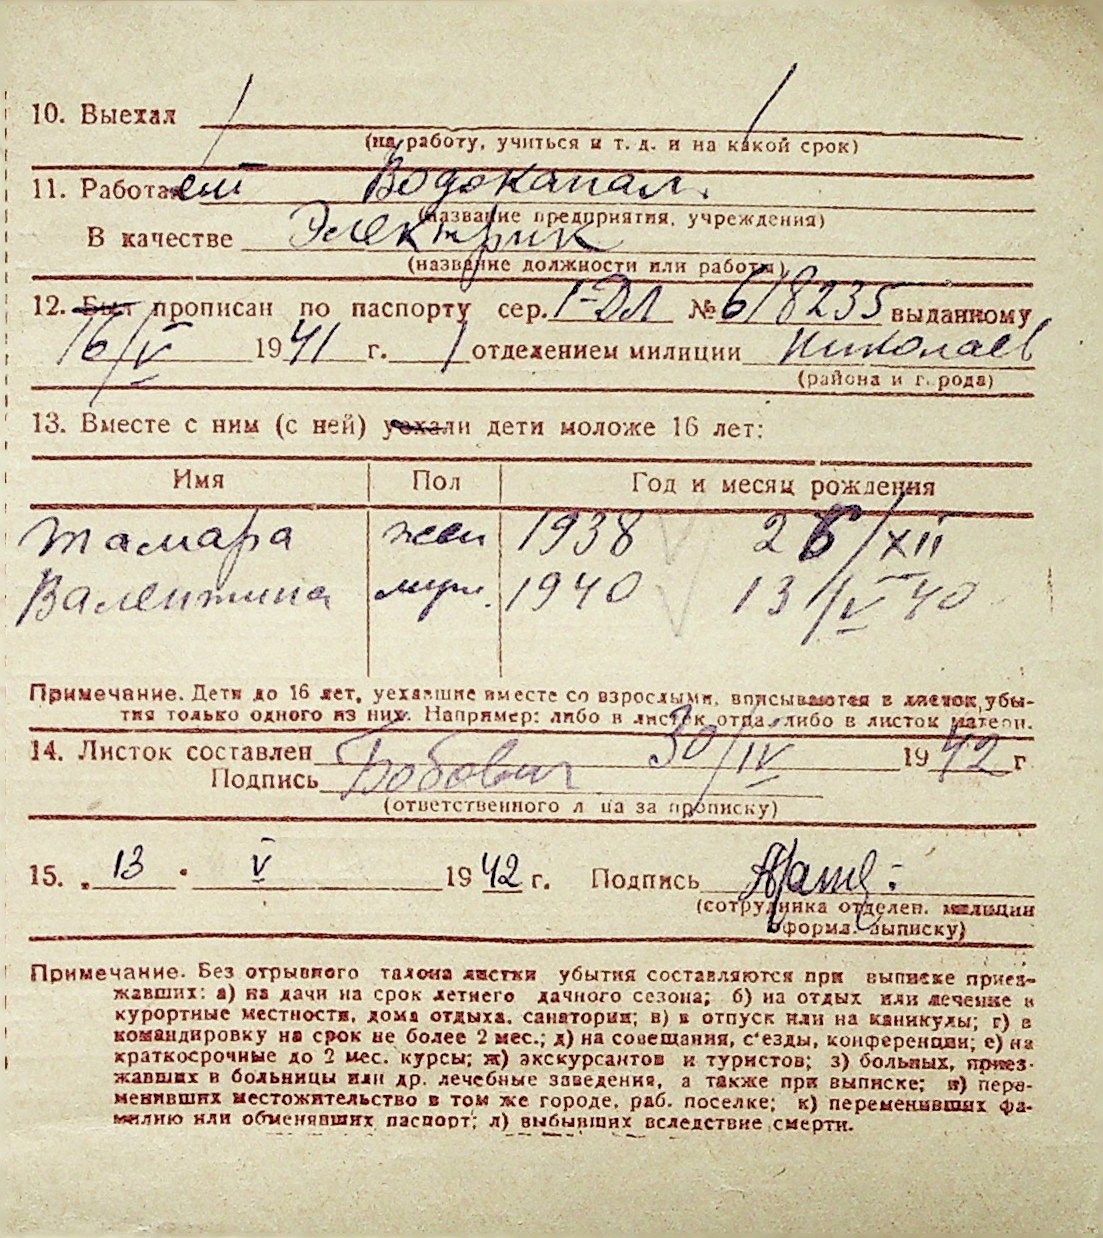 10. Выехал
(на работу, учиться и т. д. и на какой срок)
11. Работает Водоканал.
(название предприятия, учреждения)
В качестве Электрик
(название должности или работы)
12. Был прописан по паспорту сер. I-ДЛ № 618235 выданному
16/V 1941 г. 1 отделением милиции Николаев
(района и города)
13. Вместе с ним (с ней) уехали дети моложе 16 лет:
Имя Пол Год и месяц рождения
Тамара жен 1938 26/XII
Валентина муж. 1940 13/V 40
Примечание. Дети до 16 лет, уехавшие вместе со взрослыми, вписываются в листок убы-
тия только одного из них. Например: либо в листок отца, либо в листок матери.
14. Листок составлен 30/IV 1942 г
Подпись Бобович
(ответственного лица за прописку)
15. „13 • V 1942 г. Подпись
(сотрудника отделен. милиции
оформл. выписку)
Примечание. Без отрывного талона листки убытия составляются при выписке приез-
жавших: а) на дачи на срок летнего дачного сезона; б) на отдых или лечение в
курортные местности, дома отдыха, санатории; в) в отпуск или на каникулы; г) в
командировку на срок не более 2 мес.; д) на совещания, с'езды, конференции; е) на
краткосрочные до 2 мес. курсы; ж) экскурсантов и туристов; з) больных, приез-
жавших в больницы или др. лечебные заведения, а также при выписке; и) пере-
менивших местожительство в том же городе, раб. поселке; к) переменивших фа-
милию или обменявших паспорт; л) выбывших вследствие смерти.